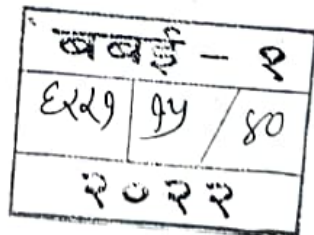 बबई - १
६२२१ १५ / ४०
२०२२